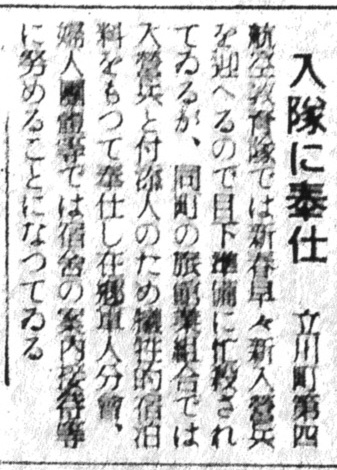 入隊に奉仕
立川町第四
航空教育隊では新春早々新入營兵
を迎へるので目下準備に忙殺され
てゐるが、同町の旅館業組合では
入營兵と付添人のため犠牲的宿泊
料をもつて奉仕し在郷軍人分會、
婦人團體等では宿舍の案内接待等
に努めることになつてゐる